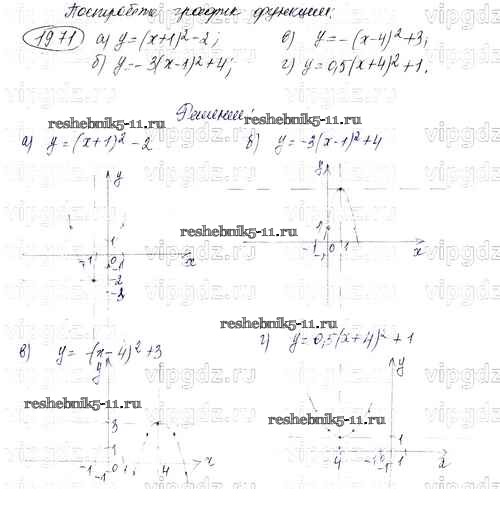 Постройте график функции:
1971 а) y=(x+1)²-2; в) y=-(x-4)²+3;
б) y=-3(x-1)²+4; г) y=0,5(x+4)²+1.
Решение:
reshebnik5-11.ru
а) y=(x+1)²-2 б) y=-3(x-1)²+4
reshebnik5-11.ru
y
y
1
1
-1 0 1 x
-1
-2
-3
-1 0 1 x
-1
reshebnik5-11.ru
в) y=-(x-4)²+3 г) y=0,5(x+4)²+1
y
y
reshebnik5-11.ru
reshebnik5-11.ru
3
1
-1 0 1 4 x
-1
1
4 -1 1 x
vipgdz.ru